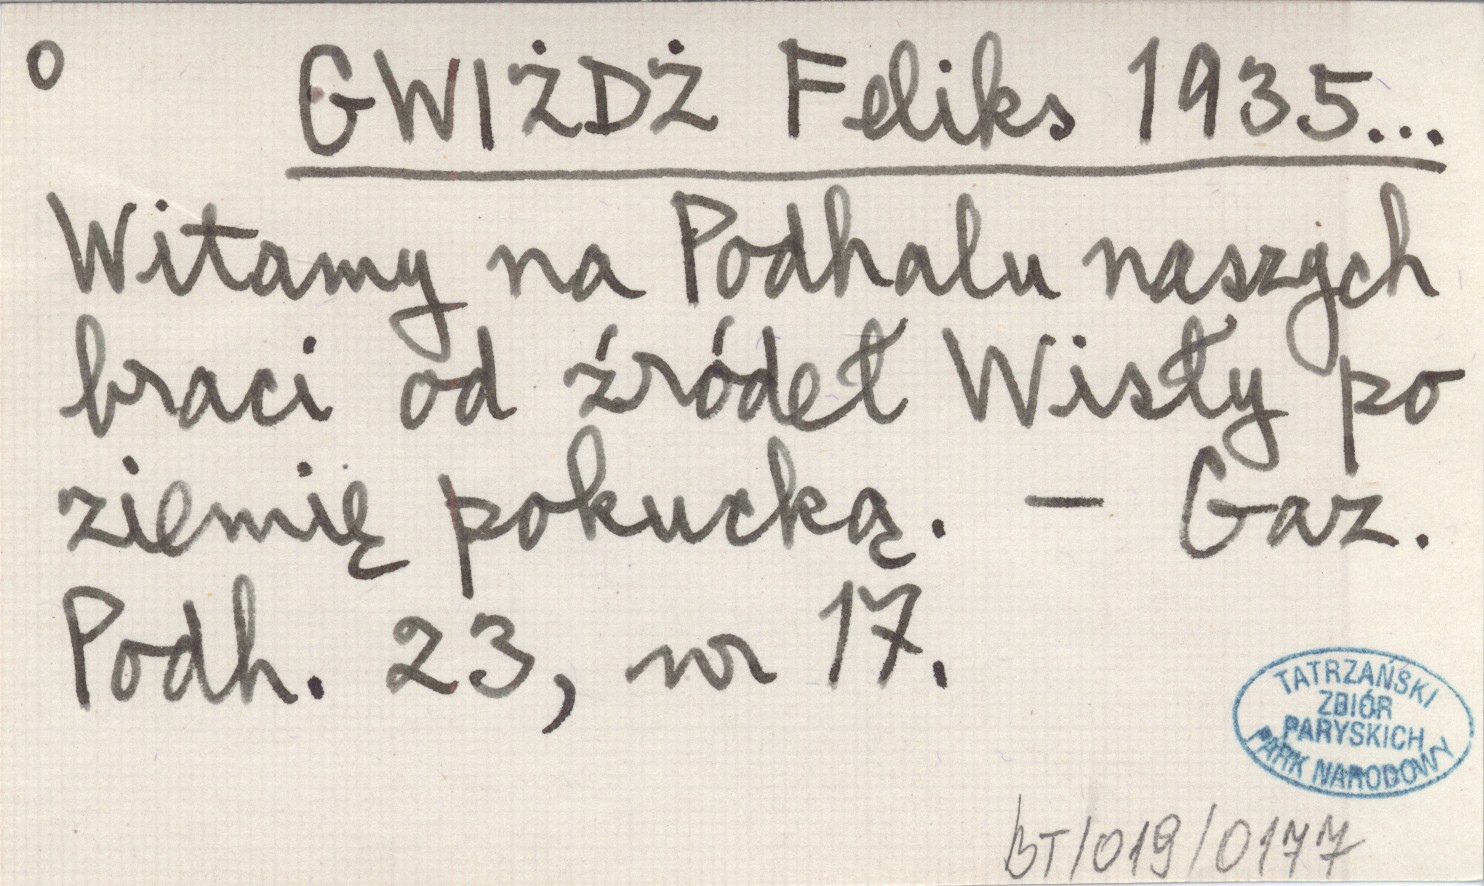 o GWIŻDŻ Feliks 1935...
Witamy na Podhalu naszych
braci od źródeł Wisły po
ziemię pokucką. — Gaz.
Podh. 23, nr 17.
TATRZAŃSKI
ZBIÓR
PARYSKICH
PARK NARODOWY
BT/019/0177